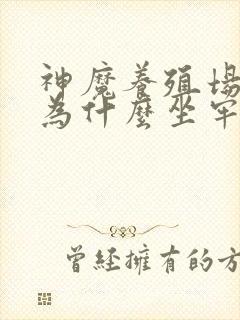 神魔養殖場
為什麼坐牢
曾經擁有的方